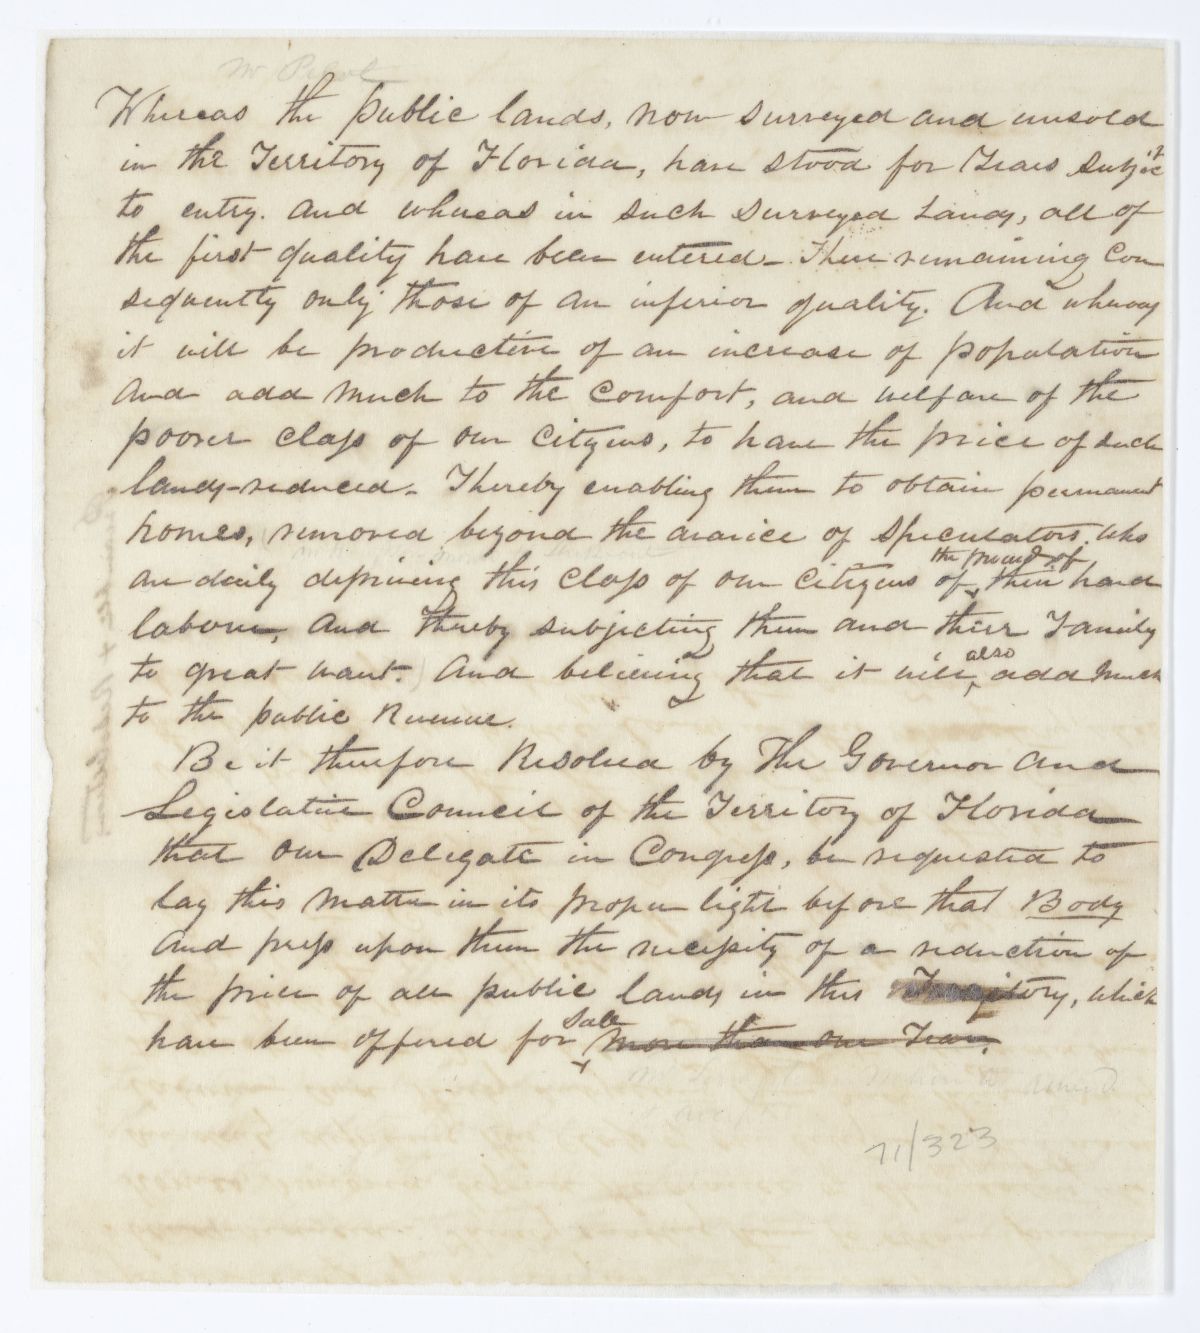 Whereas the public lands, now surveyed and unsold
in the Territory of Florida, have stood for Years subject
to entry. And whereas in such surveyed Lands, all of
the first quality have been entered_ There remaining Con
sequently only those of an inferior quality. And whereas
it will be productive of an increase of population
And add much to the Comfort, and welfare of the
poorer class of our Citizens, to have the price of such
lands reduced_ Thereby enabling them to obtain permanent
homes, removed beyond the avarice of Speculators, who
are daily depriving this Class of our Citizens of the proceeds of their hard
labour, And thereby subjecting them and their Family
to great want. And believing that it will also add much
to the public Revenue.
Be it therefore Resolved by The Governor and
Legislative Council of the Territory of Florida
that our Delegate in Congress, be requested to
lay this matter in its proper light before that Body
And press upon them the necessity of a reduction of
the price of all public lands in this Territory, which
have been offered for Sale more than one Year.
71/323